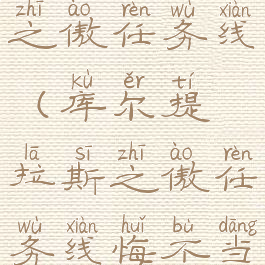 zhī ào rèn wù xiàn
之傲任务线
kù ěr tí
（库尔提
lā sī zhī ào rèn
拉斯之傲任
wù xiàn huǐ bù dāng
务线悔不当